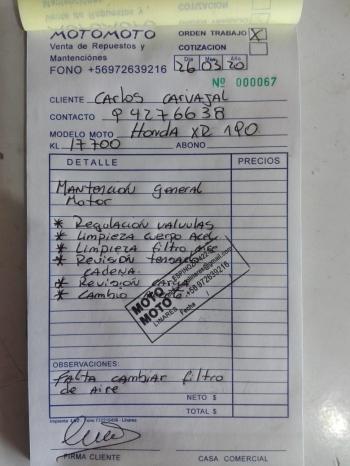 MOTOMOTO
ORDEN TRABAJO X
Venta de Repuestos y
COTIZACION
Mantenciones
Día Mes Año
FONO +56972639216
26 03 20
Nº 000067
CLIENTE CARLOS CARVAJAL
CONTACTO 94276638
MODELO MOTO HONDA XR 190
KL 17700 ABONO
DETALLE PRECIOS
MANTENCION general
Motor
* Regulación valvulas
* Limpieza cuerpo Acel.
* Limpieza filtro aire
* Revision tensado
CADENA.
* Revisión
* Cambio
MOTO
MOTO
LINARES
+56 972639216
Fecha
OBSERVACIONES:
FALTA CAMBIAR filtro
de Aire
NETO $
TOTAL $
FIRMA CLIENTE CASA COMERCIAL